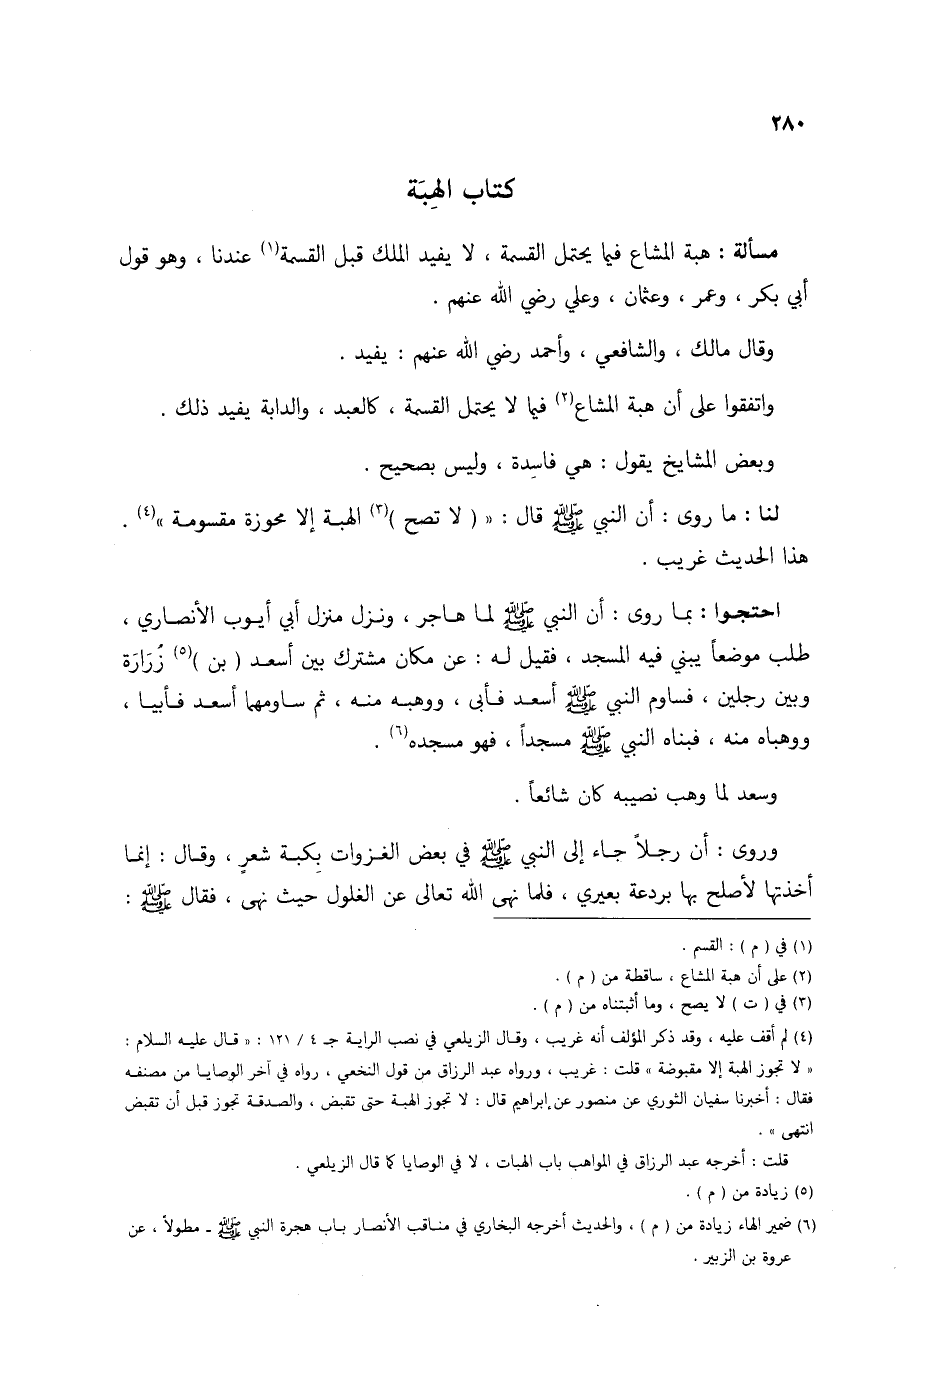 ٢٨٠
كتاب الهِبَة
مسألة : هبة المشاع فيما يحتمل القسمة ، لا يفيد الملك قبل القسمة(١) عندنا ، وهو قول
أبي بكر ، وعمر ، وعثمان ، وعلي رضي الله عنهم .
وقال مالك ، والشافعي ، وأحمد رضي الله عنهم : يفيد .
واتفقوا على أن هبة المشاع(٢) فيما لا يحتمل القسمة ، كالعبد ، والدابة يفيد ذلك .
وبعض المشايخ يقول : هي فاسِدة ، وليس بصحيح .
لنا : ما روى : أن النبي ﷺ قال : « ( لا تصح )(٣) الهبة إلا محوزة مقسومة »(٤) .
هذا الحديث غريب .
احتجوا : بما روى : أن النبي ﷺ لما هاجر ، ونزل منزل أبي أيوب الأنصاري ،
طلب موضعاً يبني فيه المسجد ، فقيل له : عن مكان مشترك بين أسعد ( بن )(٥) زُرَارَة
وبين رجلين ، فساوم النبي ﷺ أسعد فأبى ، ووهبه منه ، ثم ساومهما أسعد فأبيا ،
ووهباه منه ، فبناه النبي ﷺ مسجداً ، فهو مسجده(٦) .
وسعد لما وهب نصيبه كان شائعاً .
وروى : أن رجلاً جاء إلى النبي ﷺ في بعض الغزوات بِكبة شعرٍ ، وقال : إنما
أخذتها لأصلح بها بردعة بعيري ، فلما نهى الله تعالى عن الغلول حيث نهى ، فقال ﷺ :
(١) في ( م ) : القسم .
(٢) على أن هبة المشاع ، ساقطة من ( م ) .
(٣) في ( ت ) لا يصح ، وما أثبتناه من ( م ) .
(٤) لم أقف عليه ، وقد ذكر المؤلف أنه غريب ، وقال الزيلعي في نصب الراية جـ ٤ / ١٢١ : « قال عليه السلام :
« لا تجوز الهبة إلا مقبوضة » قلت : غريب ، ورواه عبد الرزاق من قول النخعي ، رواه في آخر الوصايا من مصنفه
فقال : أخبرنا سفيان الثوري عن منصور عن إبراهيم قال : لا تجوز الهبة حتى تقبض ، والصدقة تجوز قبل أن تقبض
انتهى » .
قلت : أخرجه عبد الرزاق في المواهب باب الهبات ، لا في الوصايا كما قال الزيلعي .
(٥) زيادة من ( م ) .
(٦) ضمير الهاء زيادة من ( م ) ، والحديث أخرجه البخاري في مناقب الأنصار باب هجرة النبي ﷺ ـ مطولاً ، عن
عروة بن الزبير .